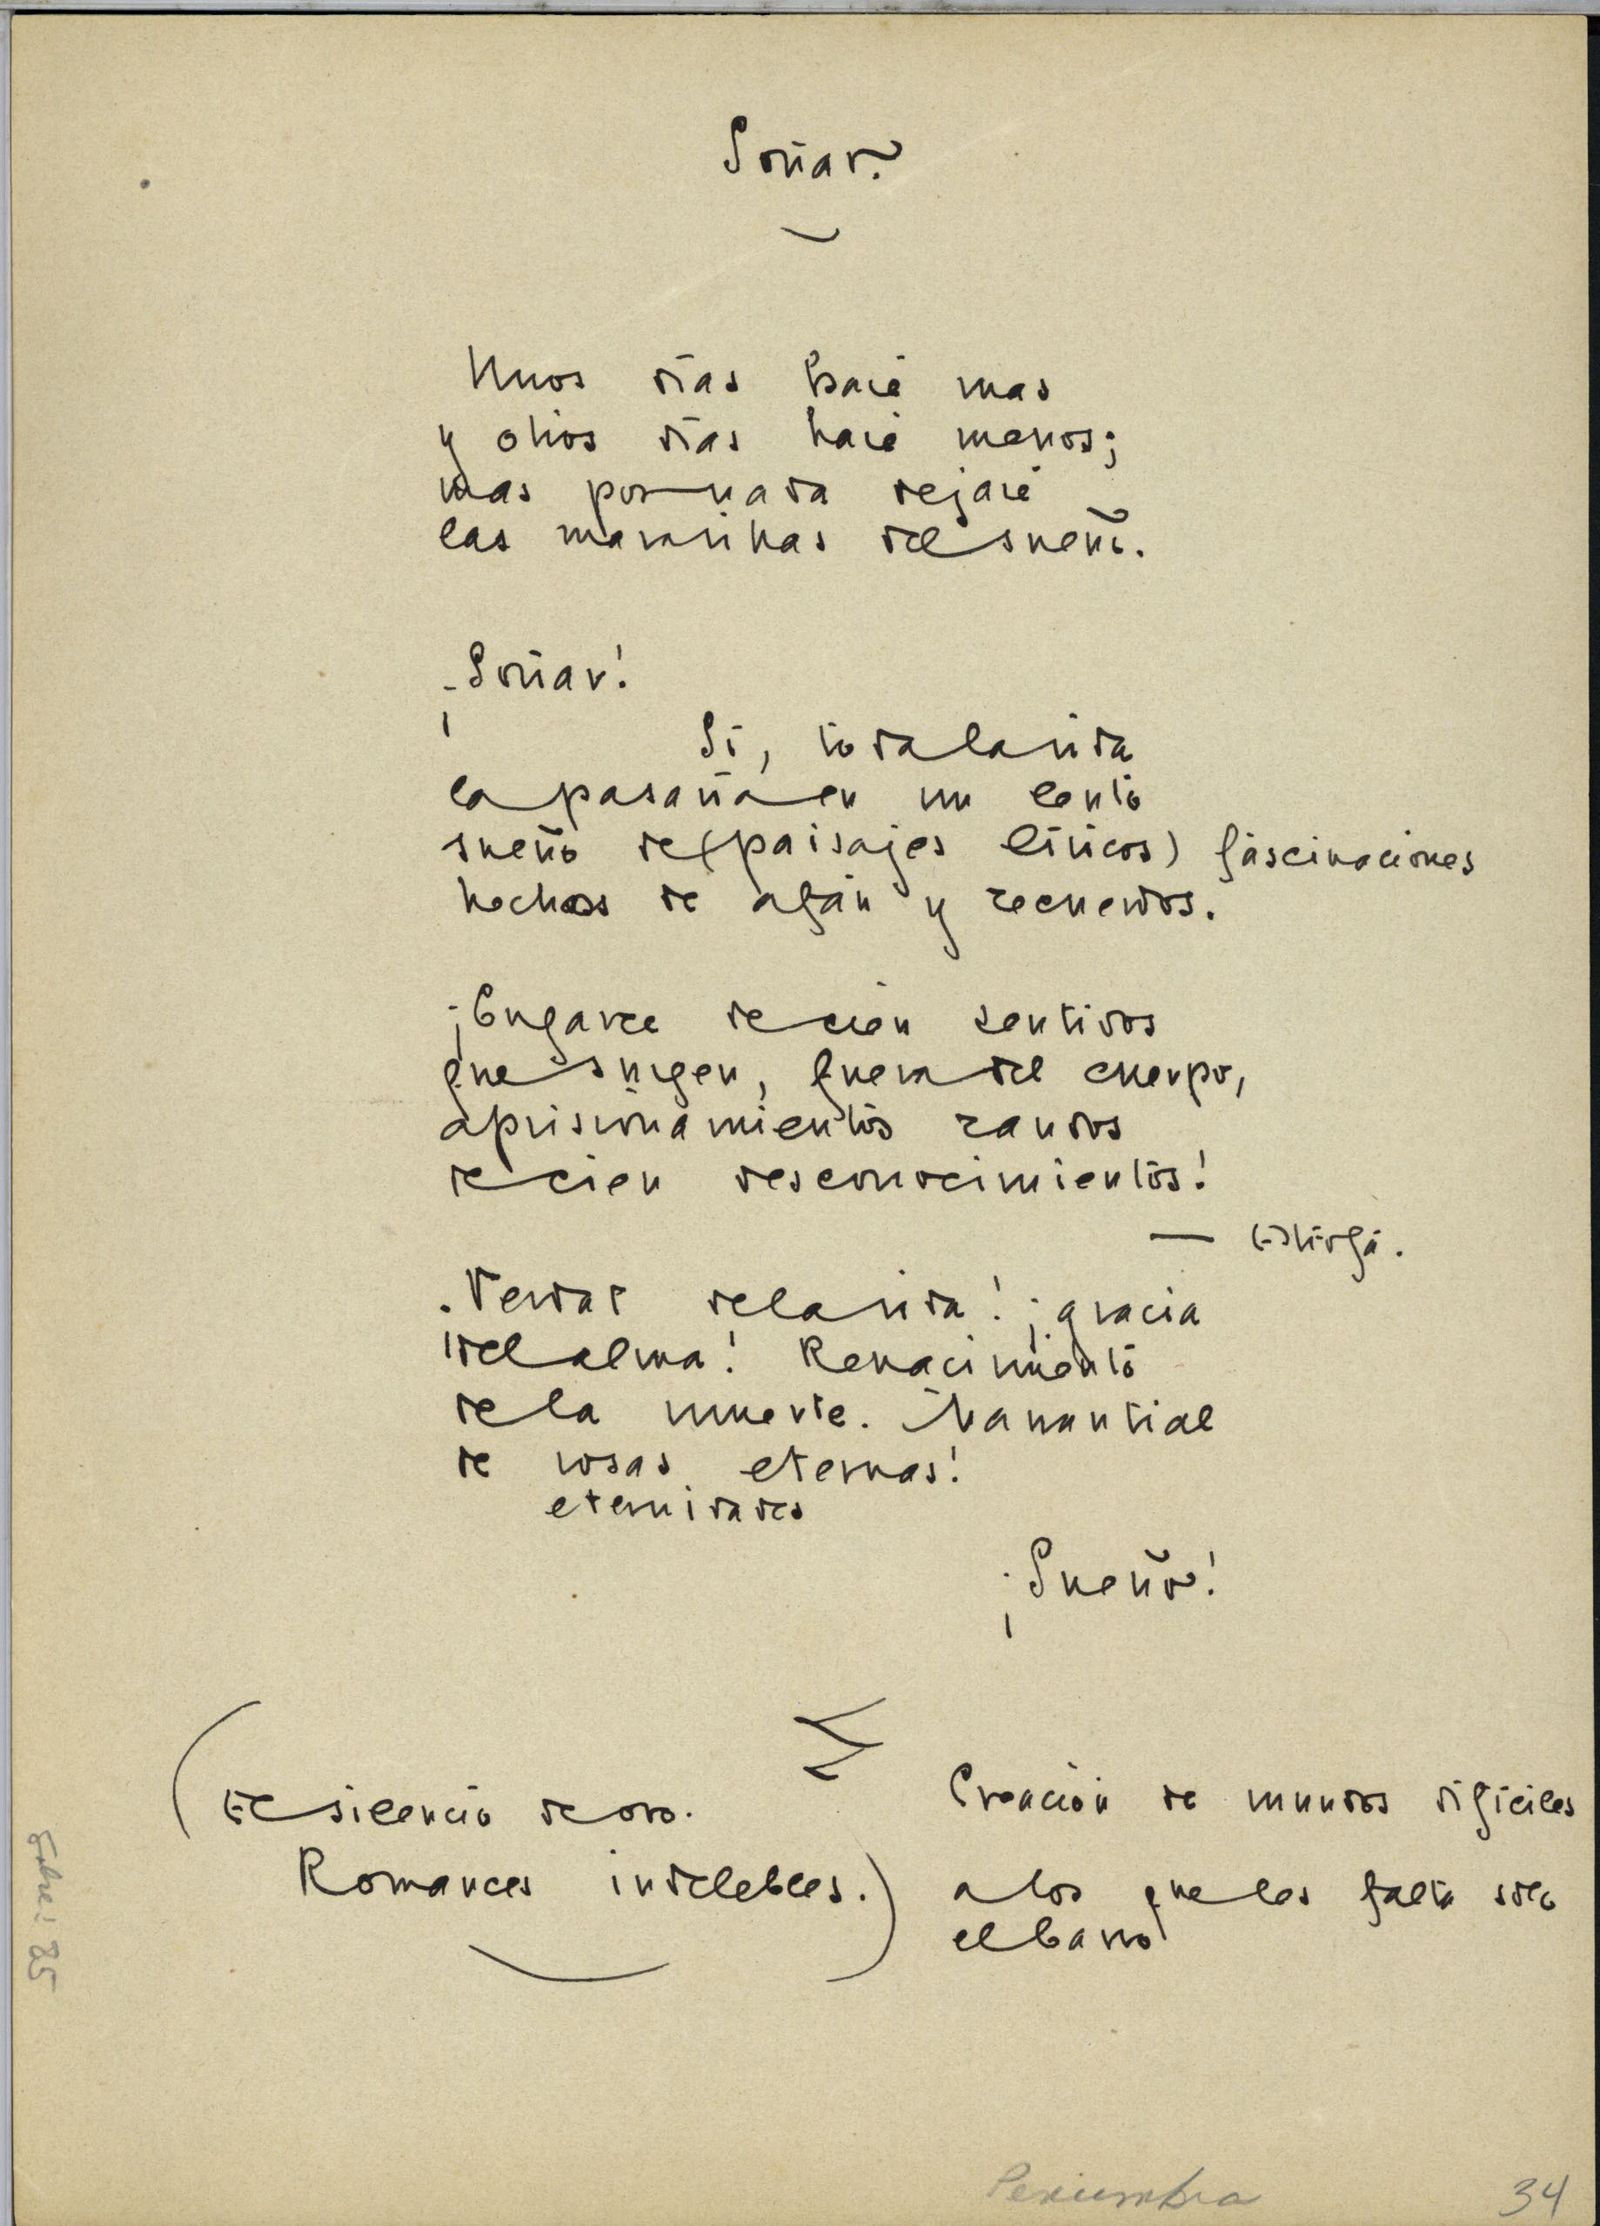 Soñar.
Unos días haré mas
y otros días haré menos;
mas por nada dejaré
las maravillas del sueño.
¡Soñar!
Sí, toda la vida
la pasaría en un lento
sueño de (paisajes líricos) fascinaciones
hechas de afán y recuerdos.
¡Engarce de cien sentidos
que surgen, fuera del cuerpo,
aprisionamientos raudos
de cien desconocimientos!
— Estrofa.
¡Verdad de la vida! ¡gracia
del alma! Renacimiento
de la muerte. Manantial
de rosas eternas!
eternidades
¡Sueño!
(El silencio de oro.
Romances indelebles.)
Creación de mundos difíciles
a los que les falta solo
el barro
Penumbra
34